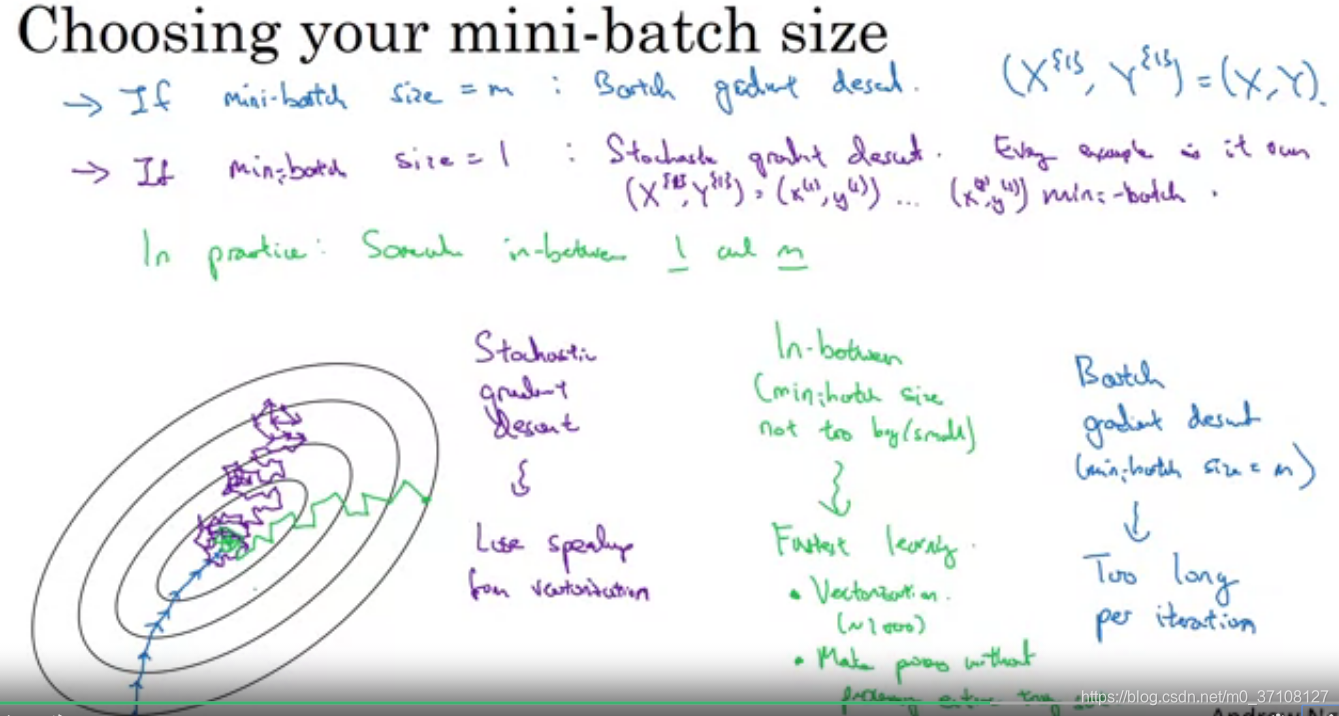 Choosing your mini-batch size
→ If mini-batch size = m : Batch gradient descent. (X^{1}, Y^{1}) = (X, Y).
→ If mini-batch size = 1 : Stochastic gradient descent. Every example is it own
(X^{1}, Y^{1}) = (x^(1), y^(1)) ... mini-batch.
In practice: Somewhere in-between 1 and m
Stochastic
gradient
descent
Lose speedup
from vectorization
In-between
(mini-batch size
not too big/small)
Fastest learning.
• Vectorization.
(~1000)
• Make progress without
processing entire training set.
Batch
gradient descent
(mini-batch size = m)
Too long
per iteration
https://blog.csdn.net/m0_37108127
Andrew Ng